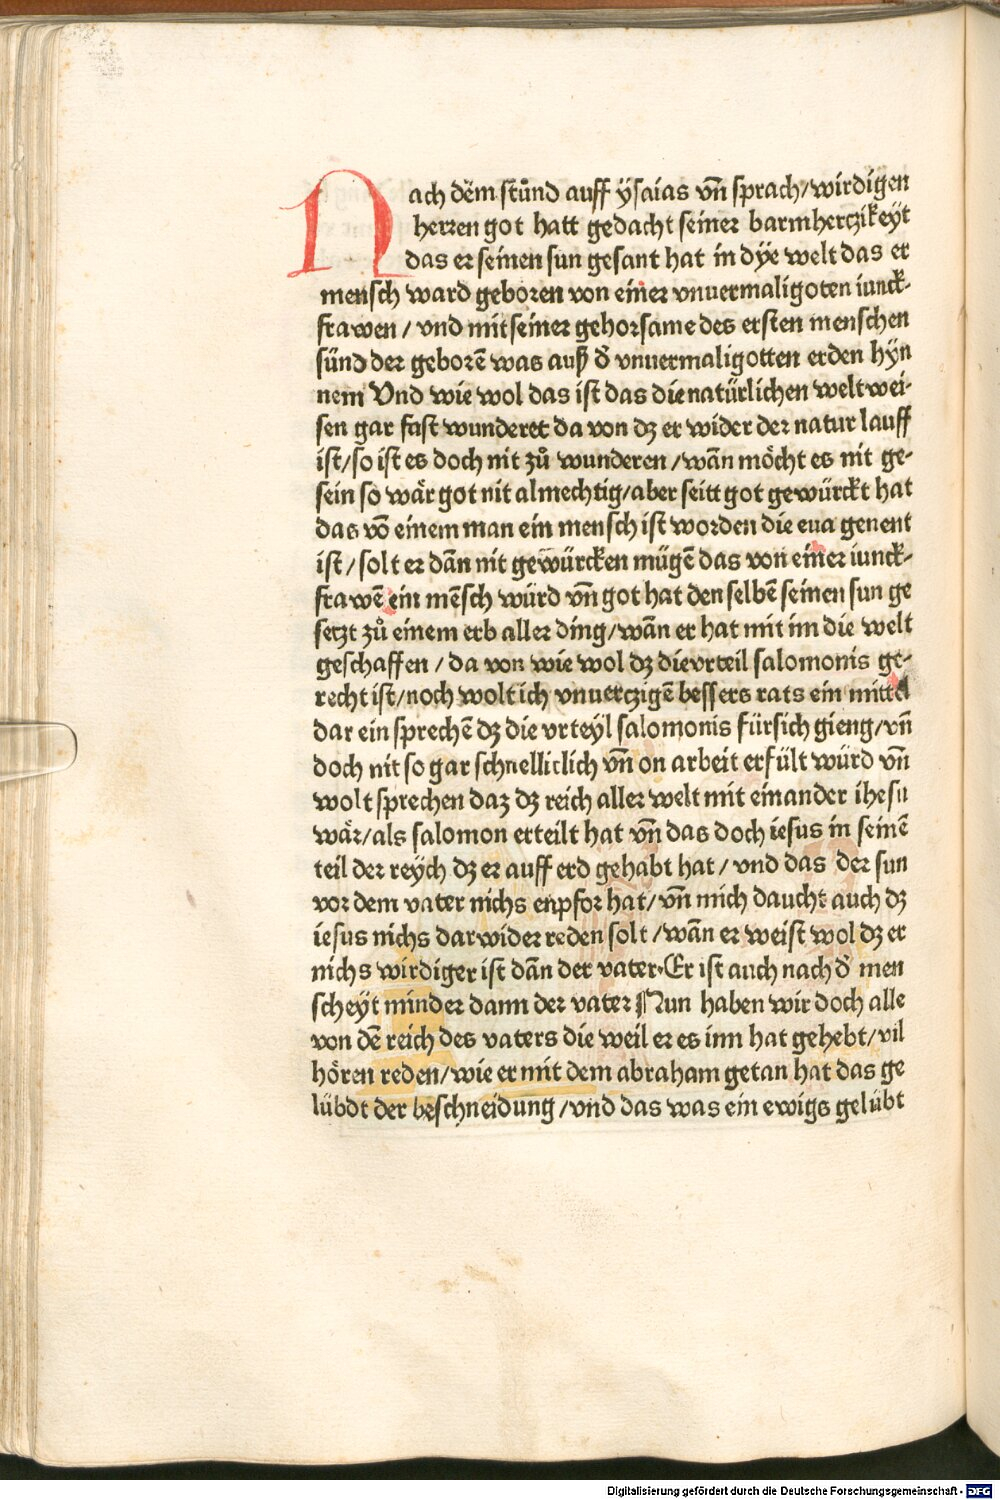 Nach dēm stůnd auff ÿsaias vn̄ sprach/wirdigen
herren got hatt gedacht seiner barmherczikeÿt
das er seinen sun gesant hat in dÿe welt das er
mensch ward geboren von einer vnuermaligoten iunck⸗
frawen/vnd mit seiner gehorsame des ersten menschen
sünd der geborē was auß d̄ vnuermaligotten erden hÿn
nem Vnd wie wol das ist das die natürlichen welt wei⸗
sen gar fast wunderet da von dz er wider der natur lauff
ist/so ist es doch nit zů wunderen/wān möcht es nit ge⸗
sein so wär got nit almechtig/aber seitt got gewürckt hat
das vō einem man ein mensch ist worden die eua genent
ist/solt er dān nit gewürcken mügē das von einer iunck⸗
frawē ein mēsch würd vn̄ got hat den selbē seinen sun ge
setzt zů einem erb aller ding/wān er hat mit im die welt
geschaffen/da von wie wol dz die vrteil salomonis ge⸗
recht ist/noch wolt ich vnuerczigē bessers rats ein mittel
dar ein sprechē dz die vrteÿl salomonis fürsich gieng/vn̄
doch nit so gar schnelliclich vn̄ on arbeit erfült würd vn̄
wolt sprechen daz dz reich aller welt mit einander ihesu
wär/als salomon erteilt hat vn̄ das doch iesus in seinē
teil der reÿch dz er auff erd gehabt hat/vnd das der sun
vor dem vater nichs enpfor hat/vn̄ mich daucht auch dz
iesus nichs darwider reden solt/wān er weist wol dz er
nichs wirdiger ist dān der vater·Er ist auch nach d̄ men
scheÿt minder dann der vater Nun haben wir doch alle
von dē reich des vaters die weil er es inn hat gehebt/vil
hören reden/wie er mit dem abraham getan hat das ge
lübdt der beschneidung/vnd das was ein ewigs gelübt
Digitalisierung gefördert durch die Deutsche Forschungsgemeinschaft - DFG